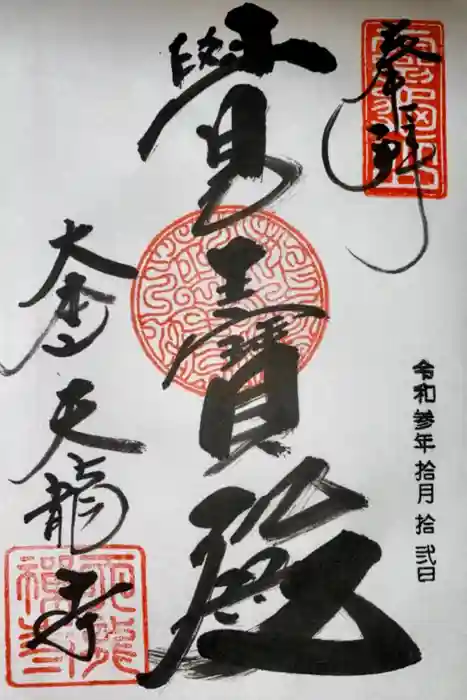 奉拝
令和参年拾月拾弐日
覺王寳殿
大本山
天龍寺